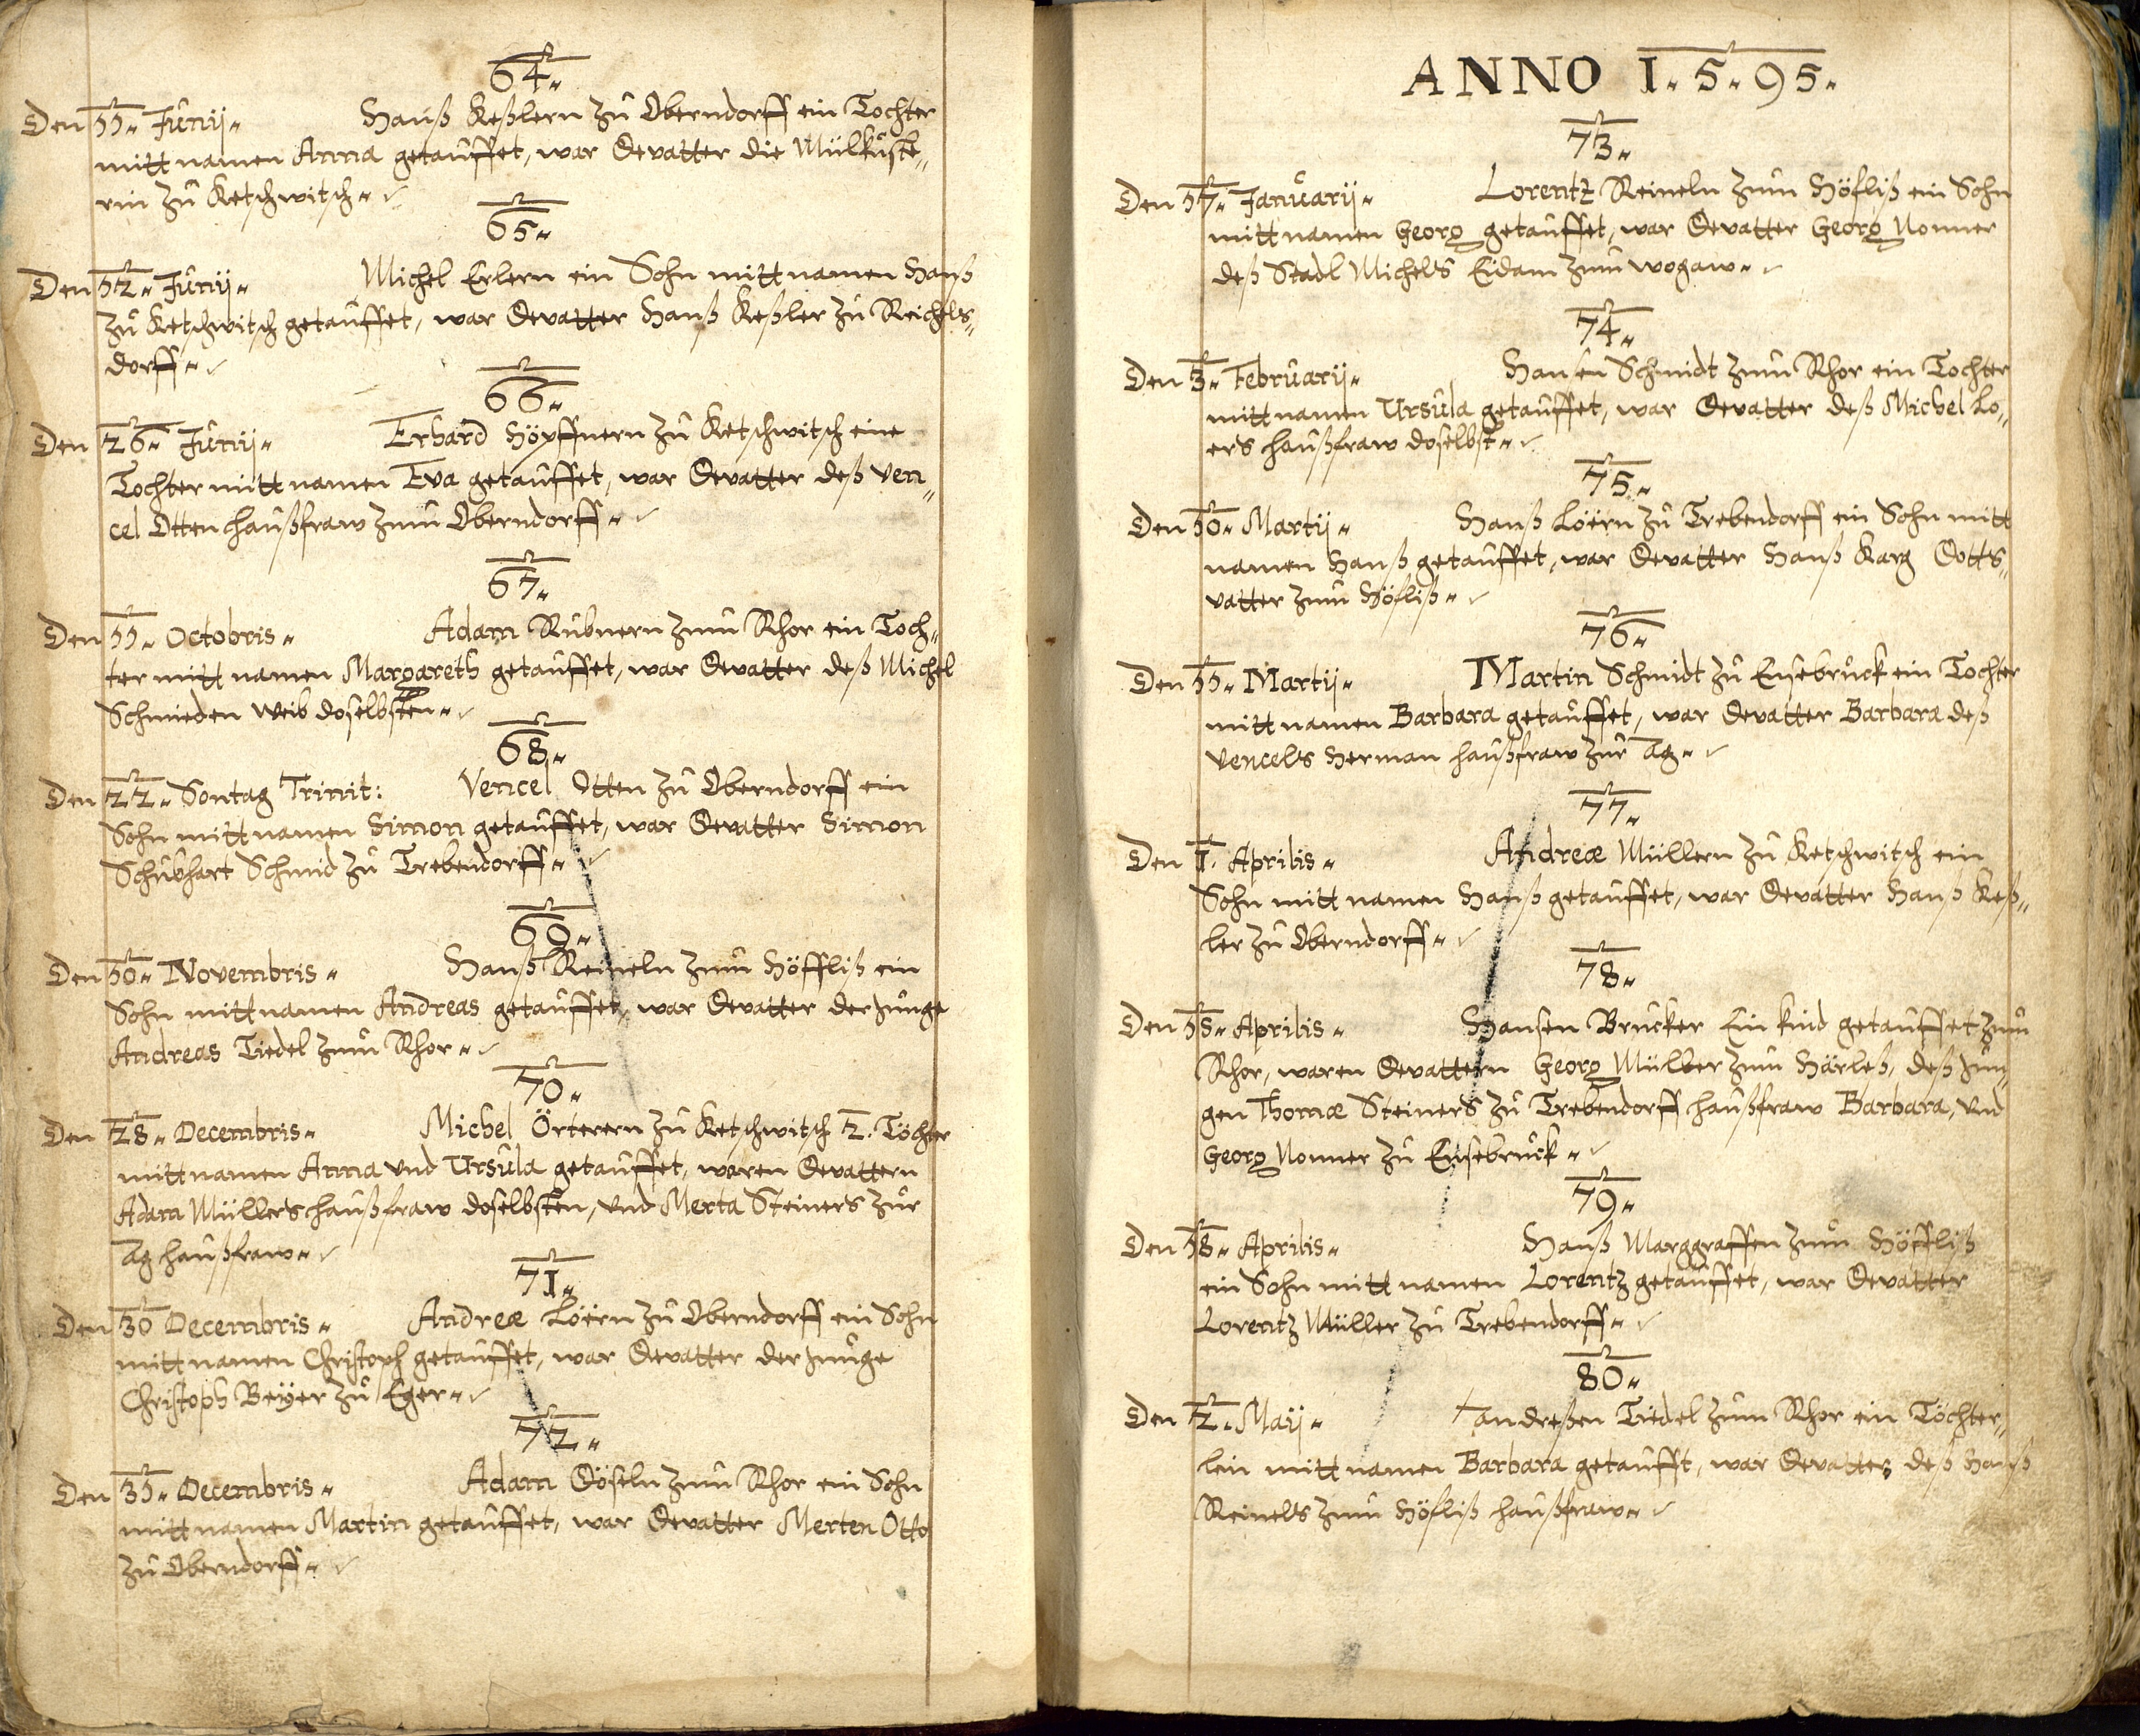 64.
Den 11. Junij. Hanß Keßlern zu Oberndorff ein Tochter
mitt namen Anna getauffet, war Gevatter die
rin zu Ketschwitsch.
65.
Den 12. Junij. Michel Erlern ein Sohn mitt namen Hanß
zu Ketschwitsch getauffet, war Gevatter Hanß Keßler zu Reichels¬
dorff.
66.
Den 26. Junij. Erhard Höpffnern zu Ketschwitsch eine
Tochter mitt namen Eva getauffet, war Gevatter deß Ven¬
cel Otten haußfraw zum Oberndorff.
67.
Den 11. Octobris. Adam Rubnern zum Rhor ein Toch¬
ter mitt namen Margareth getauffet, war Gevatter deß Michel
Schmieden Weib doselbsten.
68.
Den 22. Sontag Trinit: Vencel Otten zu Oberndorff ein
Sohn mitt namen Simon getauffet, war Gevatter Simon
Schmid zu Trebendorff.
69.
Den 10. Novembris. Hanß Reineln zum Höffliß ein
Sohn mitt namen Andreas getauffet, war Gevatter der junge
Andreas Tiedel zum Rhor.
70.
Den 28. Decembris. Michel Örterern zu Ketschwitsch 2. Töchter
mitt namen Anna vnd Ursula getauffet, waren Gevattern
Adam Müllers haußfraw doselbsten, vnd Merta Steiners zur
Ag haußfraw.
71.
Den 30 Decembris. Andreæ Löiern zu Oberndorff ein Sohn
mitt namen Christoph getauffet, war Gevatter der junge
Christoph Beÿer zu Eger.
72.
Den 31. Decembris. Adam Göseln zum Rhor ein Sohn
mitt namen Martin getauffet, war Gevatter Merten Otto
zu Oberndorff.
ANNO 1.5.95.
73.
Den 17. Januarij. Lorentz Reineln zum Höfliß ein Sohn
mitt namen Georg getauffet, war Gevatter Georg Nonner
deß Stadl Michels Eidam zum wogaw.
74.
Den 3. Februarij. Hansen Schmidt zum Rhor ein Tochter
mitt namen Ursula getauffet, war Gevatter deß Michel Lo¬
ers haußfraw doselbst.
75.
Den 10. Martij. Hanß Löiern zu Trebendorff ein Sohn mitt
namen Hanß getauffet, war Gevatter Hanß Karg Gotts¬
vatter zum Höfliß.
76.
Den 11. Martij. Martin Schmidt zu Ensebruck ein Tochter
mitt namen Barbara getauffet, war Gevatter Barbara deß
Vencels Herman haußfraw zur Ag.
77.
Den 1. Aprilis. Andreæ Müllern zu Ketschwitsch ein
Sohn mitt namen Hanß getauffet, war Gevatter Hanß Keß¬
ler zu Oberndorff.
78.
Den 15. Aprilis. Hansen Brucker Ein kind getauffet zum
Rhor, waren Gevattern Georg Müller zum Härleß, deß jun¬
gen Thomæ Steiners zu Trebendorff haußfraw Barbara, vnd
Georg Nonner zu Ensebruck.
79.
Den 18. Aprilis. Hanß Marggraffen zum Höffliß
ein Sohn mitt namen Lorentz getauffet, war Gevatter
Lorentz Müller zu Trebendorff.
80.
Den 2. Maij. andreßen Tiedel zum Rhor ein Töchter¬
lein mitt namen Barbara getaufft, war Gevatter deß Hanß
Reinels zum Höfliß haußfraw.